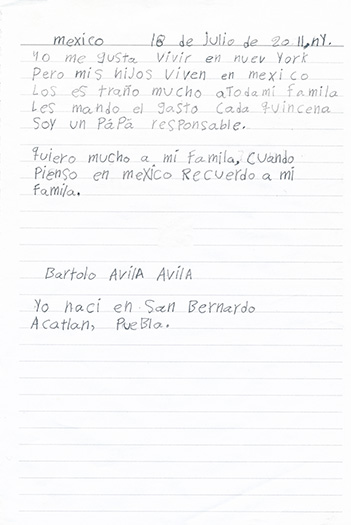 mexico 18 de Julio de 2011, NY.
Yo me gusta vivir en nuev York
Pero mis hijos viven en mexico
Los es traño mucho aToda mi Familia
Les mando el gasto cada quincena
Soy un PáPá responsable.
quiero mucho a mi Famila, cuando
Pienso en mexico Recuerdo a mi
Famila.
Bartolo AvilA AvilA
Yo naci en San Bernardo
Acatlan, PueBla.